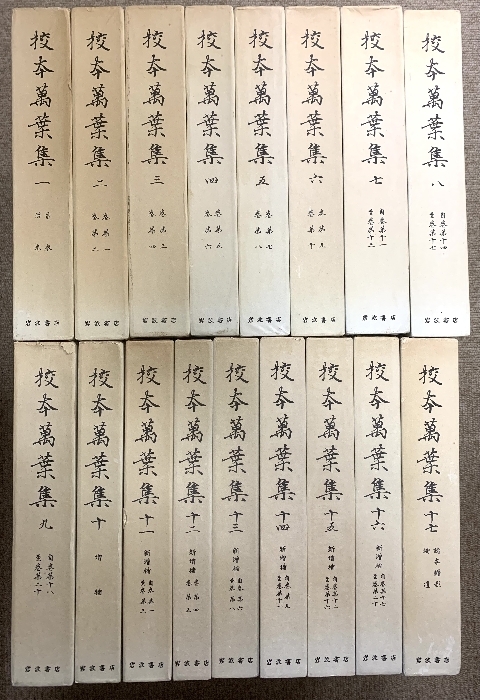 校本萬葉集 一
岩波書店
校本萬葉集 二
卷第一
卷第二
岩波書店
校本萬葉集 三
卷第三
卷第四
岩波書店
校本萬葉集 四
卷第五
卷第六
岩波書店
校本萬葉集 五
卷第七
卷第八
岩波書店
校本萬葉集 六
卷第九
卷第十
岩波書店
校本萬葉集 七
自卷第十一
至卷第十三
岩波書店
校本萬葉集 八
自卷第十四
至卷第十七
岩波書店
校本萬葉集 九
自卷第十八
至卷第二十
岩波書店
校本萬葉集 十
增補
岩波書店
校本萬葉集 十一
新增補
岩波書店
校本萬葉集 十二
新增補
卷第四
卷第五
岩波書店
校本萬葉集 十三
新增補
岩波書店
校本萬葉集 十四
新增補
自卷第九
岩波書店
校本萬葉集 十五
新增補
岩波書店
校本萬葉集 十六
新增補
自卷第十七
至卷第二十
岩波書店
校本萬葉集 十七
諸本輯影
岩波書店